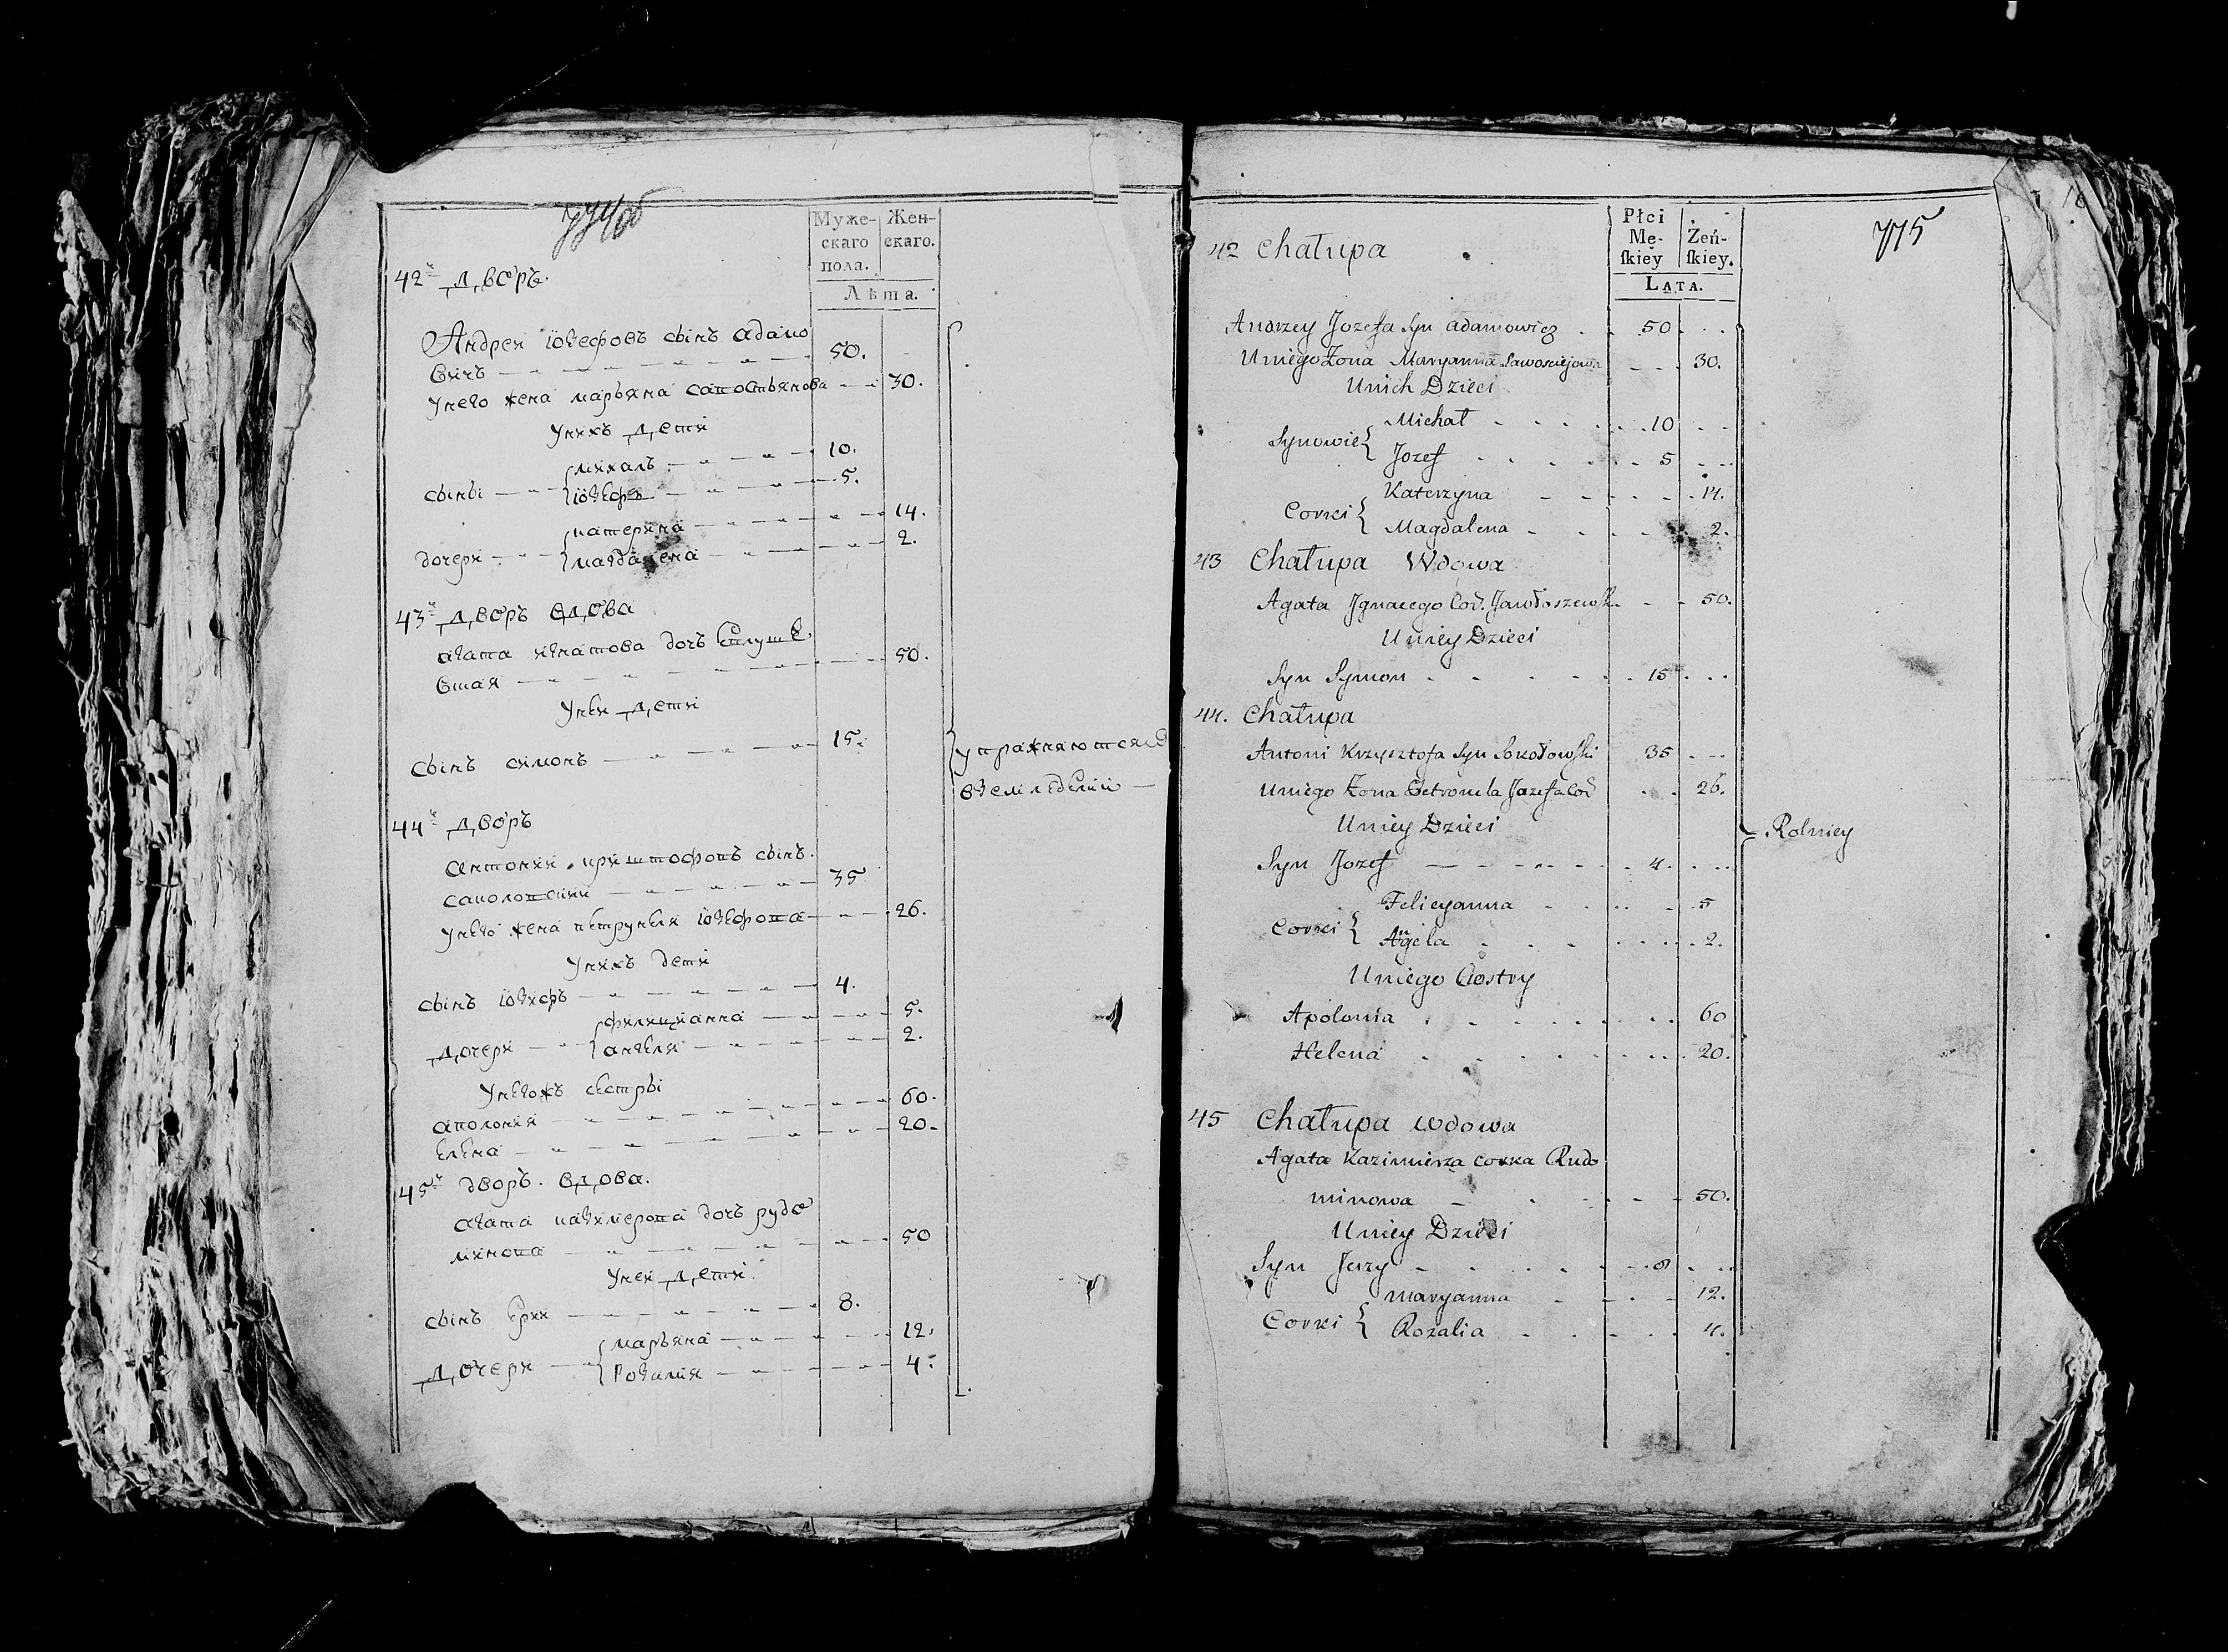 Муже-
скаго
пола.
Жен-
скаго.
Лѣта.
42й дворъ.
Андреи іозефовъ сынъ адамо
вичъ 50.
унего жена марьяна 30.
унихъ дети
сыны михалъ 10.
іозефъ 5.
дочери катерина 14.
магдалена 2.
43й дворъ вдова
агата игнатова дочь
вшая 50.
унеи дети
сынъ симонъ 15.
упражняются
вземледелии
44й дворъ
антонии криштофовъ сынъ
саколовскии 35
унего жена петрунеля іозефова 26.
унихъ дети
сынъ іозефъ 4.
дочери филицианна 5.
анъеля 2.
унегожъ сестры
аполония 60.
елена 20.
45й дворъ. вдова.
агата казимерова дочь рудо
минова 50
унеи дети
сынъ ерии 8.
дочери марьяна 12.
розалия 4.
775
Płci
Mę-
ſkiey
Zeń-
ſkiey.
LATA.
42 Chałupa
Andrzey Jozefa Syn adamowicz 50
Uniego Zona Maryanna 30.
Unich Dzieci
Synowie Michał 10
Jozef 5
Corki Katerzyna 14.
Magdalena 2.
43 Chałupa Wdowa
Agata Jgnacego Cor. 50.
Uniey Dzieci
Syn Symon 15
44. Chałupa
Antoni Krzysztofa Syn Sokołowski 35
Uniego Zona Petronela Jozefa Cor 26.
Uniey Dzieci
Syn Jozef 4.
Corki Felicyanna 5
Angela 2.
Uniego Siostry
Apolonia 60
Helena 20.
Rolnicy
45 Chałupa wdowa
Agata Kazimierza corka Rudo
minowa 50.
Uniey Dzieci
Syn Jerzy 8
Corki Maryanna 12.
Rozalia 4.